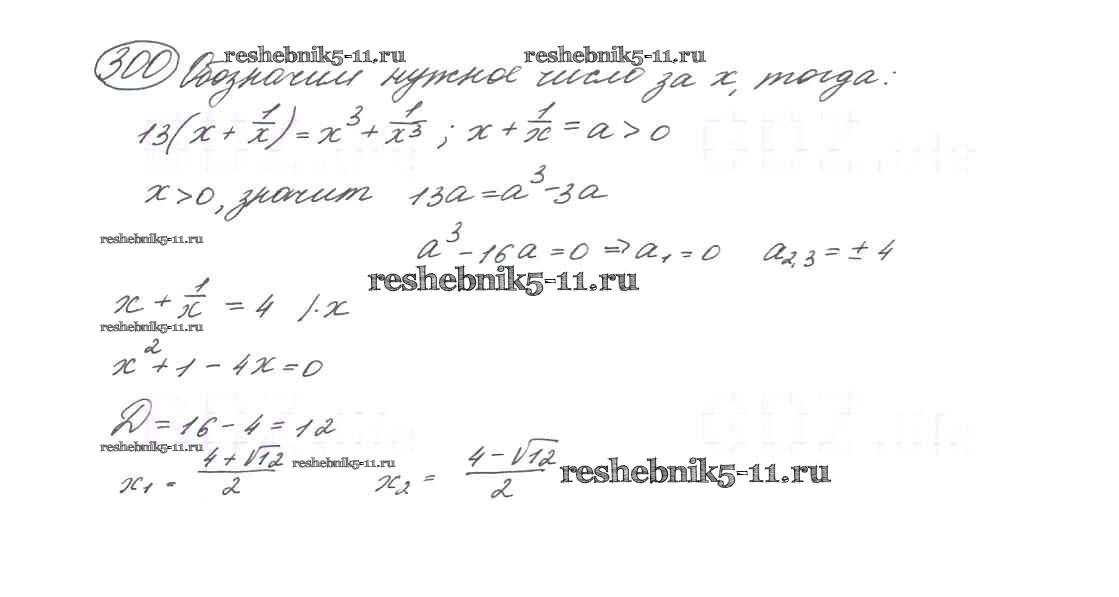 reshebnik5-11.ru reshebnik5-11.ru
300 Обозначим нужное число за x, тогда:
13(x + 1/x) = x³ + 1/x³ ; x + 1/x = a > 0
x > 0, значит 13a = a³ - 3a
reshebnik5-11.ru
a³ - 16a = 0 => a₁ = 0 a₂,₃ = ± 4
reshebnik5-11.ru
x + 1/x = 4 /·x
reshebnik5-11.ru
x² + 1 - 4x = 0
D = 16 - 4 = 12
reshebnik5-11.ru reshebnik5-11.ru
x₁ = (4 + √12)/2 x₂ = (4 - √12)/2 reshebnik5-11.ru